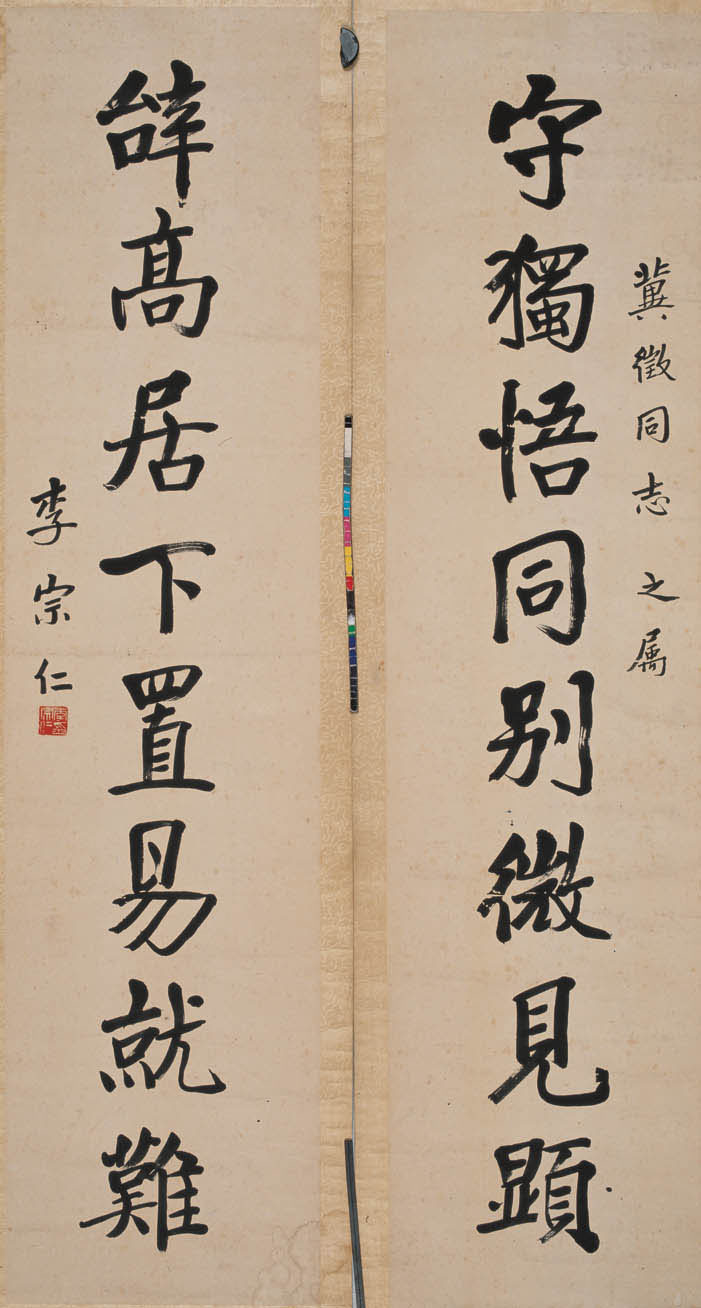 冀徵同志之属
守獨悟同别微見顕
辝高居下置易就難
李宗仁